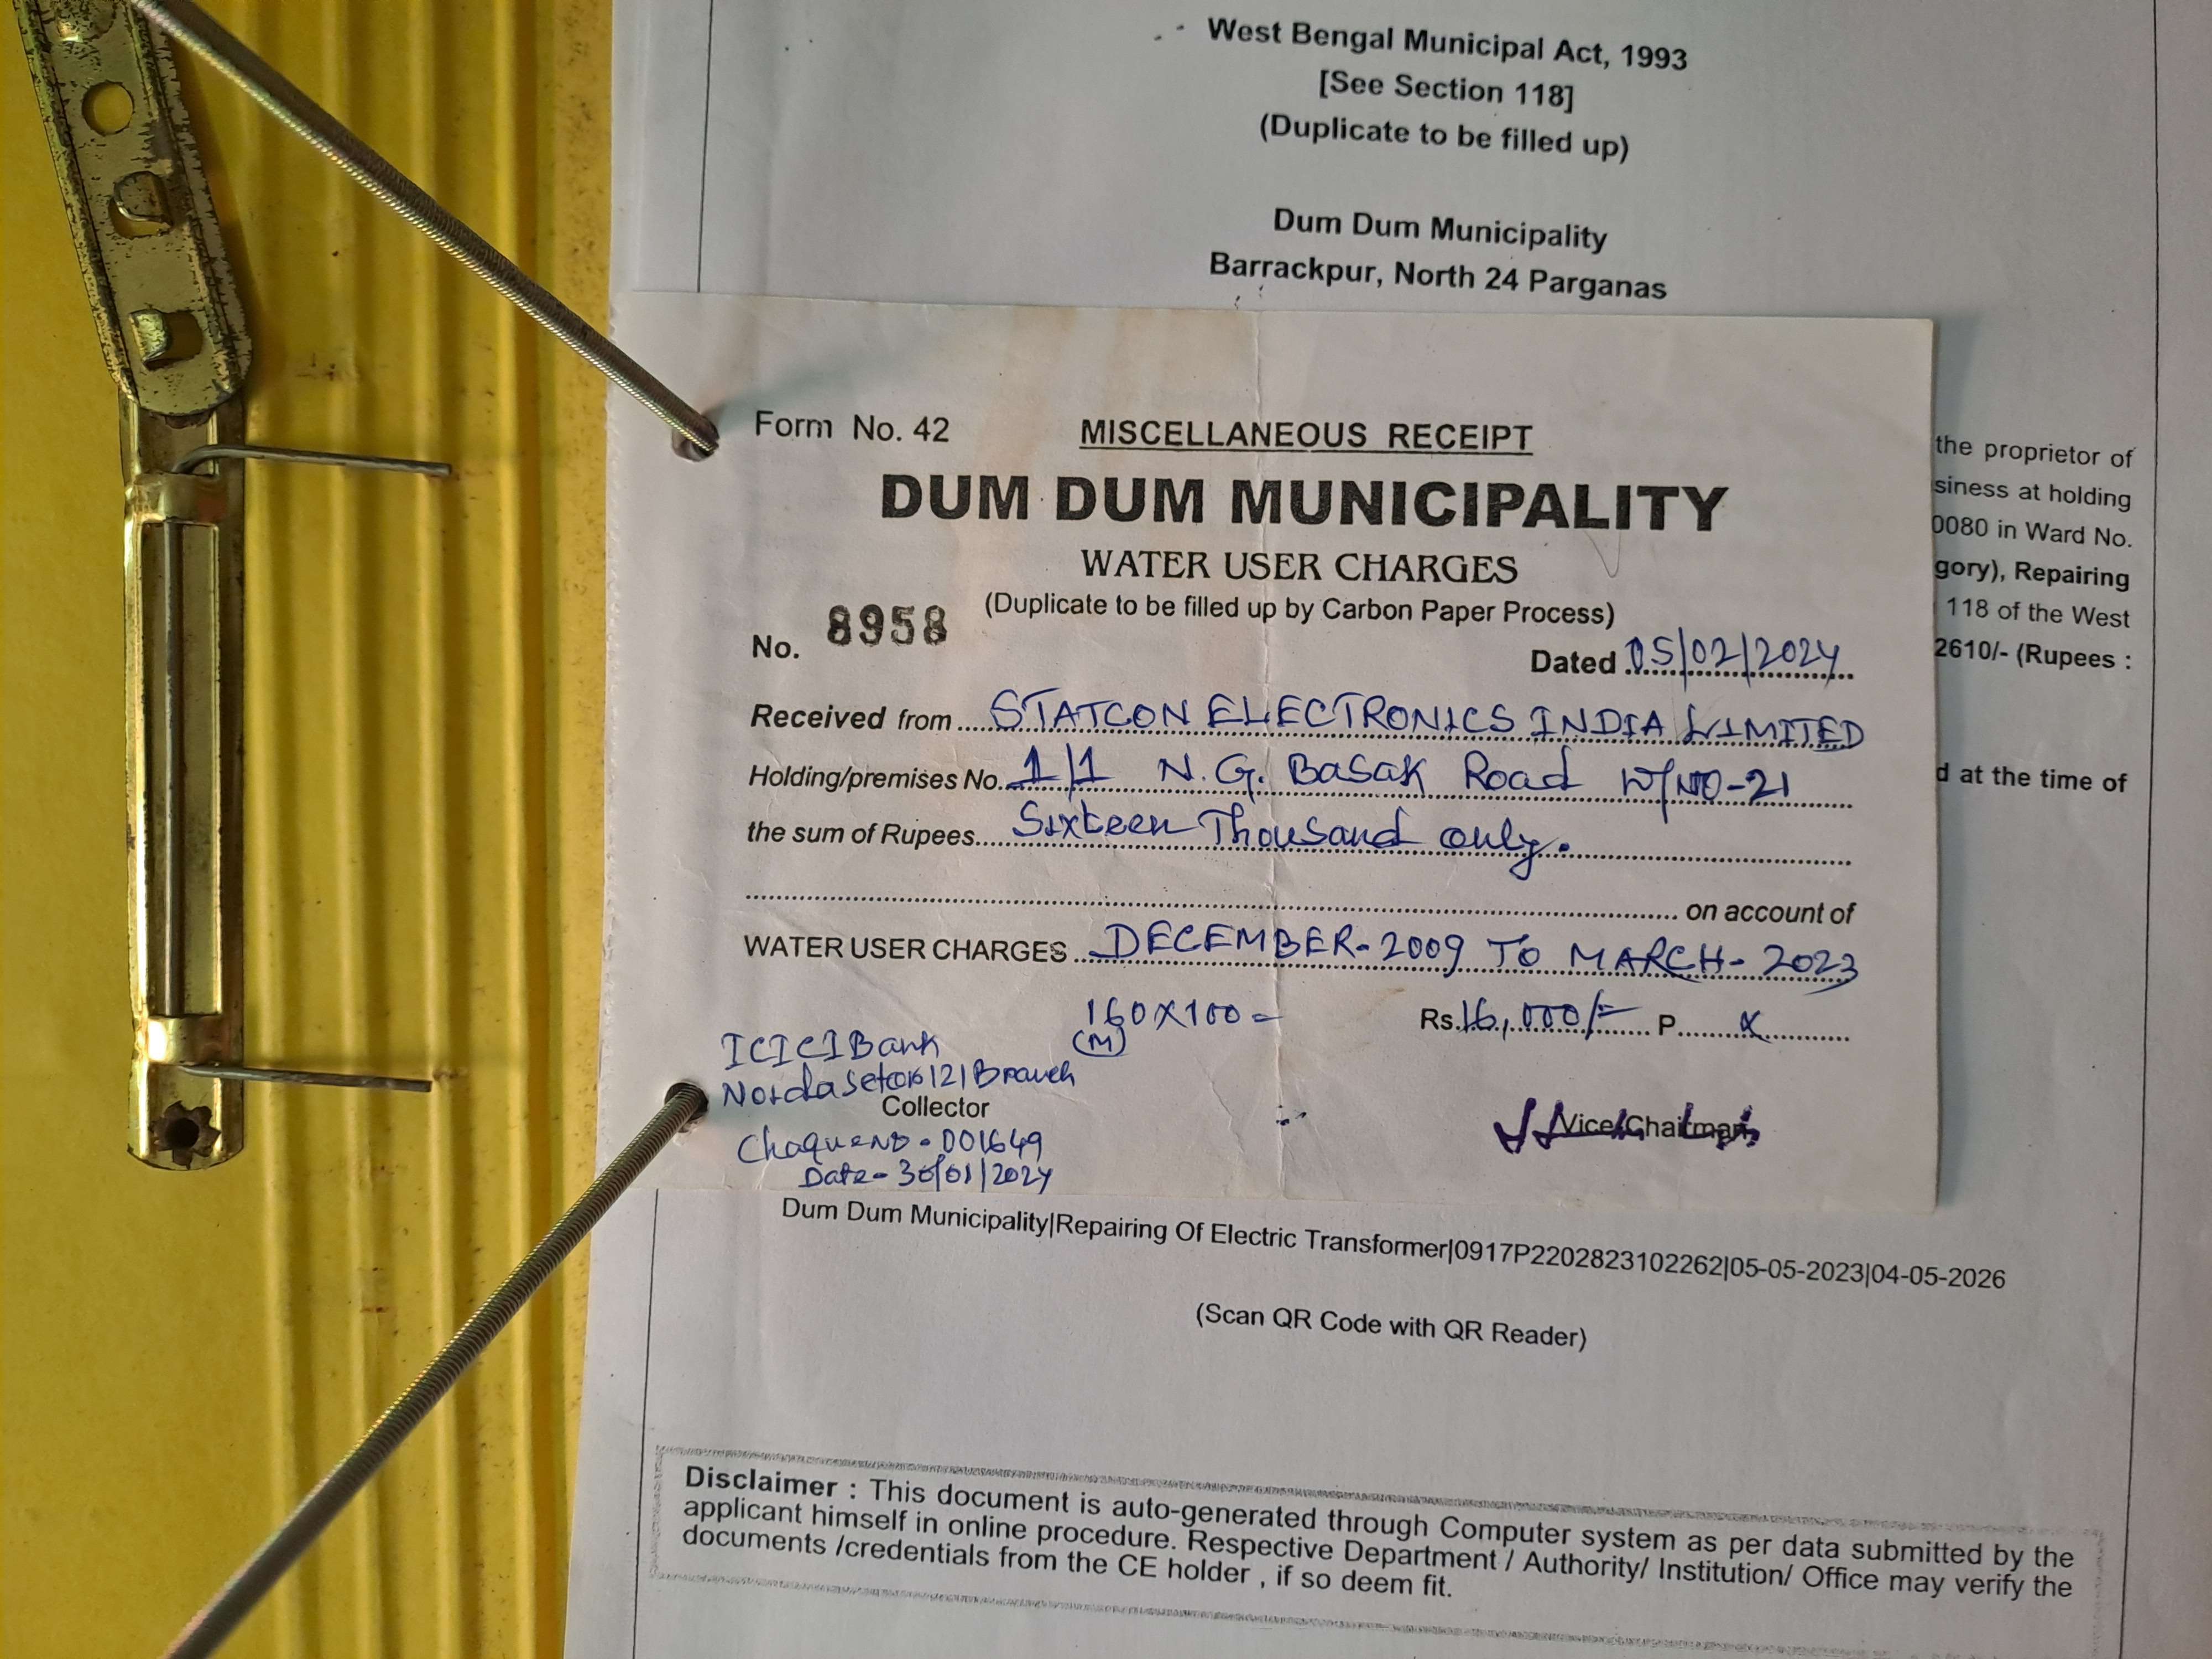 West Bengal Municipal Act, 1993
[See Section 118]
(Duplicate to be filled up)
Dum Dum Municipality
Barrackpur, North 24 Parganas
Form No. 42
MISCELLANEOUS RECEIPT
DUM DUM MUNICIPALITY
WATER USER CHARGES
(Duplicate to be filled up by Carbon Paper Process)
No. 8958
Dated 05/02/2024
Received from STATCON ELECTRONICS INDIA LIMITED
Holding/premises No. 1/1 N.G. Basak Road W/NO-21
the sum of Rupees Sixteen Thousand only.
on account of
WATER USER CHARGES DECEMBER-2009 TO MARCH-2023
160X100=
(M)
Rs. 16,000/= P. X
ICICI Bank
Noida Setcor 121 Branch
Collector
Chaque NO - 001649
Date - 30/01/2024
Vice/Chairman
the proprietor of
siness at holding
0080 in Ward No.
gory), Repairing
118 of the West
2610/- (Rupees :
d at the time of
Dum Dum Municipality|Repairing Of Electric Transformer|0917P2202823102262|05-05-2023|04-05-2026
(Scan QR Code with QR Reader)
Disclaimer : This document is auto-generated through Computer system as per data submitted by the
applicant himself in online procedure. Respective Department / Authority/ Institution/ Office may verify the
documents /credentials from the CE holder , if so deem fit.